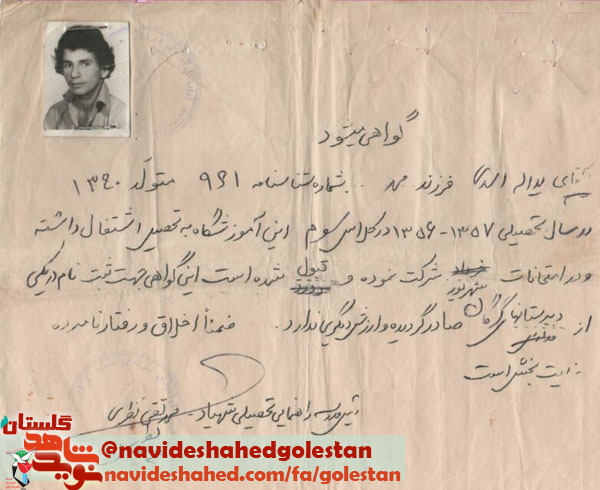 گواهی میشود
آقای یداله اسدی فرزند محمد بشماره شناسنامه ۹۶۱ متولد ۱۳۴۰
در سال تحصیلی ۱۳۵۷-۱۳۵۶ در کلاس سوم این آموزشگاه به تحصیل اشتغال داشته
و در امتحانات شهریور شرکت نموده و قبول شده است این گواهی جهت ثبت نام در یکی
از دبیرستانهای گرگان صادر گردیده و ارزش دیگری ندارد. ضمناً اخلاق و رفتار نامبرده
رضایت بخش است
رئیس مدرسه راهنمایی تحصیلی شهباز محمد تقی نظری
گلستان
نوید شاهد
@navideshahedgolestan
navideshahed.com/fa/golestan